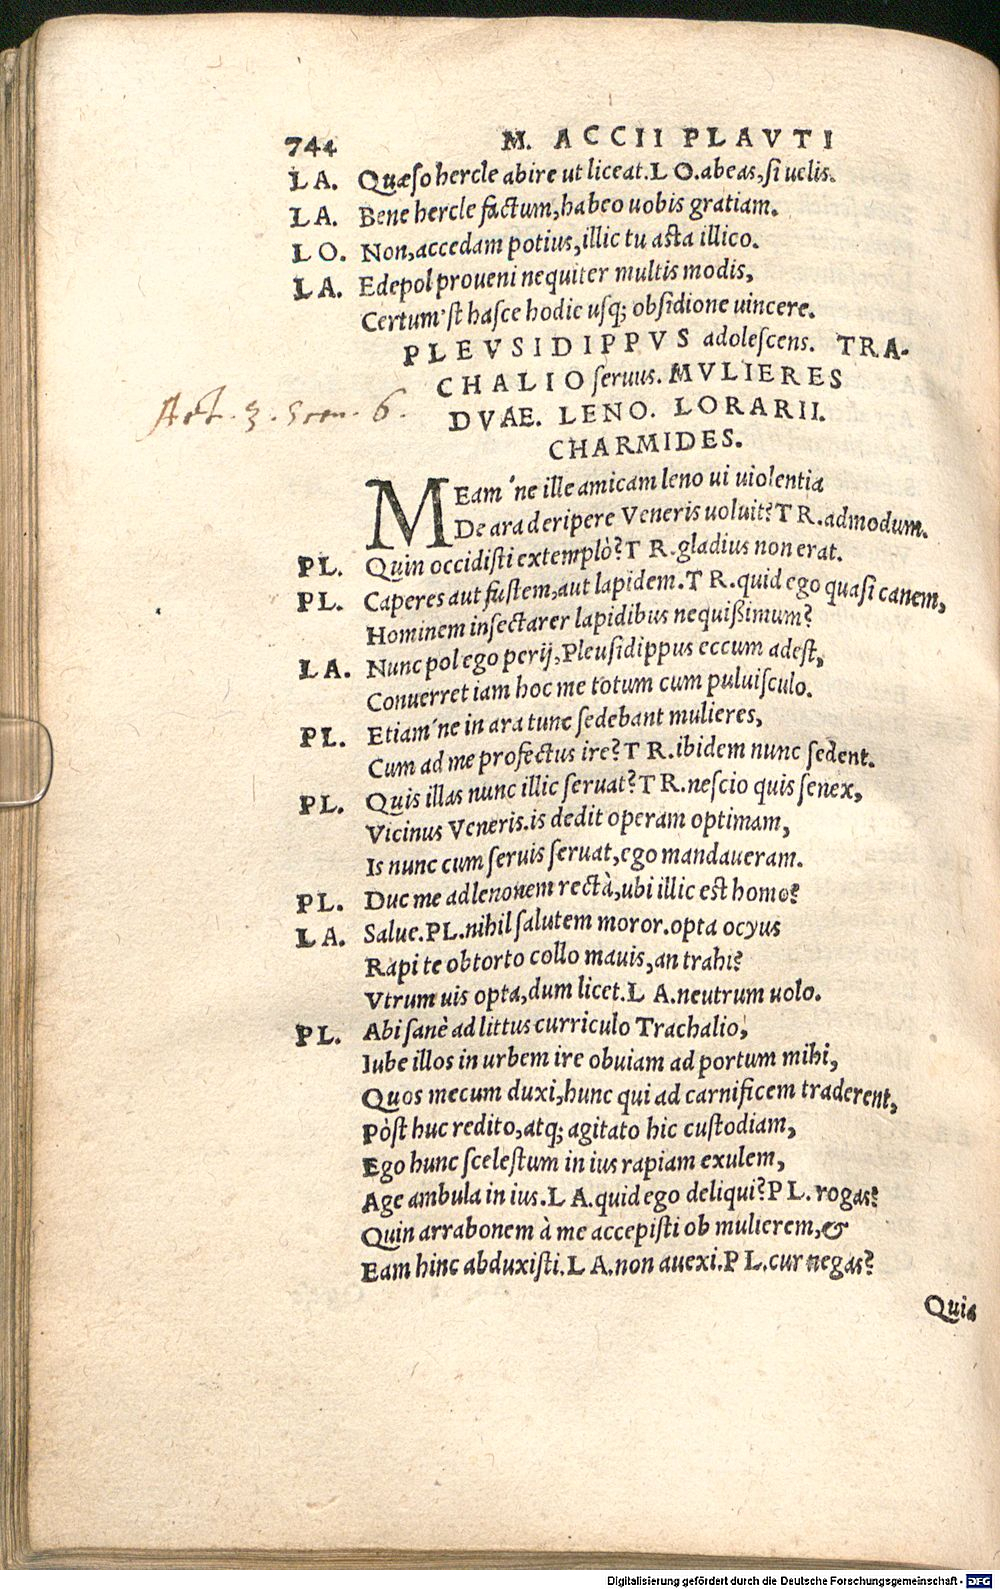 744 M. ACCII PLAVTI
LA. Quæso hercle abire ut liceat. LO. abeas, si uelis.
LA. Bene hercle factum, habeo uobis gratiam.
LO. Non, accedam potius, illic tu asta illico.
LA. Edepol proueni nequiter multis modis,
Certum'st hasce hodie usq; obsidione uincere.
PLEVSIDIPPVS adolescens. TRA-
CHALIO seruus. MVLIERES
Act. 3. Scen. 6.
DVAE. LENO. LORARII.
CHARMIDES.
MEam'ne ille amicam leno ui uiolentia
De ara deripere Veneris uoluit? TR. admodum.
PL. Quin occidisti extemplò? TR. gladius non erat.
PL. Caperes aut fustem, aut lapidem. TR. quid ego quasi canem,
Hominem insectarer lapidibus nequißimum?
LA. Nunc pol ego perij, Pleusidippus eccum adest,
Conuerret iam hoc me totum cum puluisculo.
PL. Etiam'ne in ara tunc sedebant mulieres,
Cum ad me profectus ire? TR. ibidem nunc sedent.
PL. Quis illas nunc illic seruat? TR. nescio quis senex,
Vicinus Veneris. is dedit operam optimam,
Is nunc cum seruis seruat, ego mandaueram.
PL. Duc me ad lenonem rectà, ubi illic est homo?
LA. Salue. PL. nihil salutem moror. opta ocyus
Rapi te obtorto collo mauis, an trahi?
Vtrum uis opta, dum licet. LA. neutrum uolo.
PL. Abi sanè ad littus curriculo Trachalio,
Iube illos in urbem ire obuiam ad portum mihi,
Quos mecum duxi, hunc qui ad carnificem traderent,
Pòst huc redito, atq; agitato hic custodiam,
Ego hunc scelestum in ius rapiam exulem,
Age ambula in ius. LA. quid ego deliqui? PL. rogas?
Quin arrabonem à me accepisti ob mulierem, &
Eam hinc abduxisti. LA. non auexi. PL. cur negas?
Quia
Digitalisierung gefördert durch die Deutsche Forschungsgemeinschaft - DFG